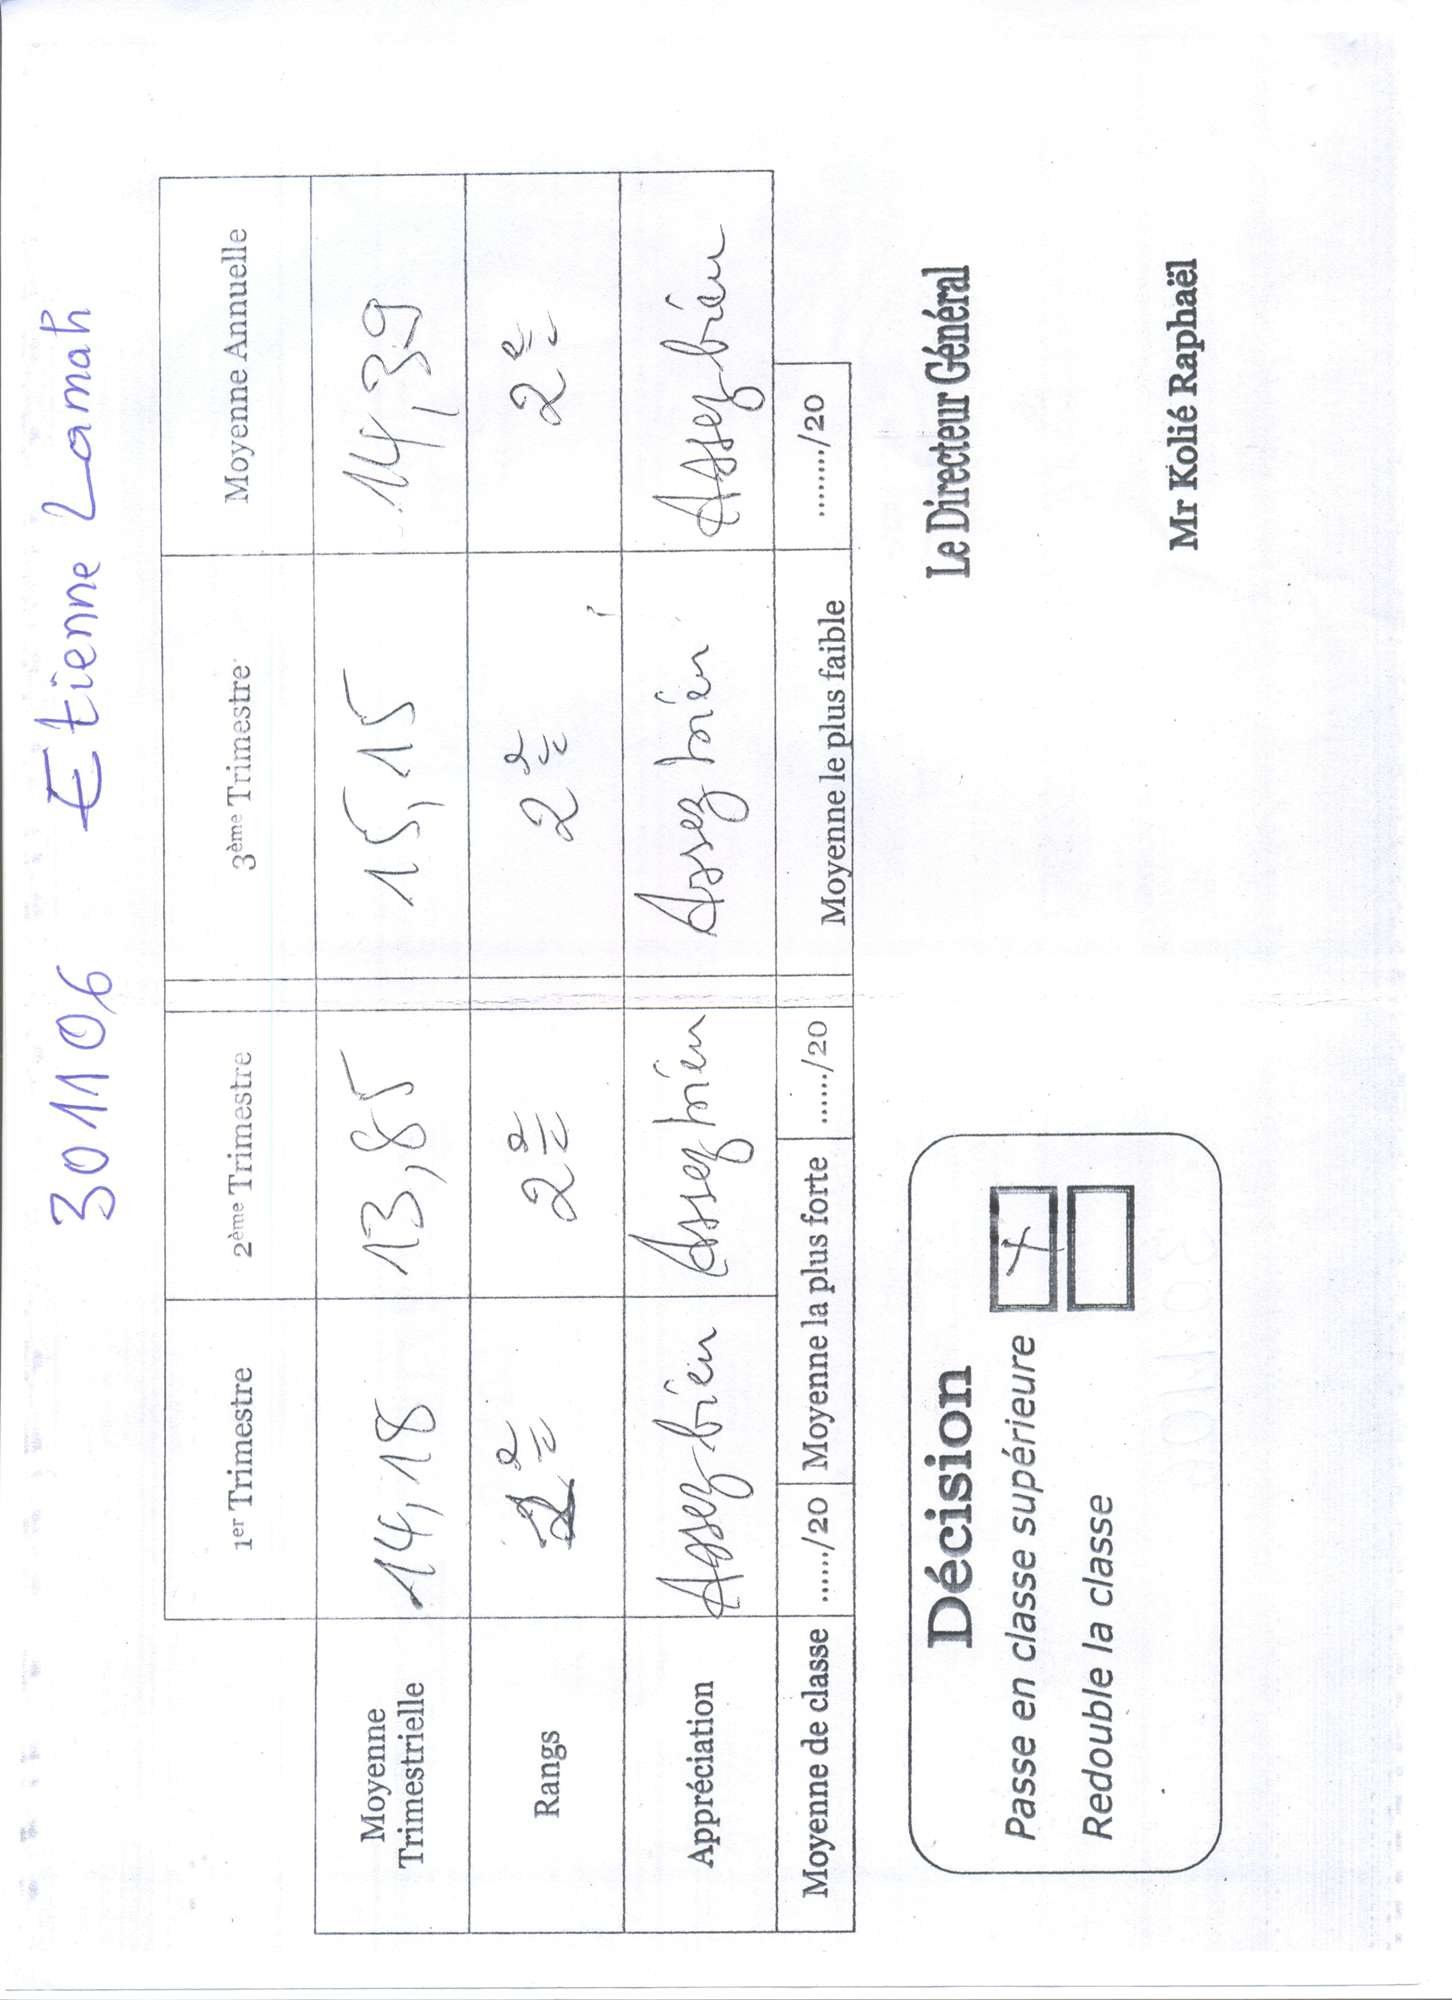 301106 Etienne Lamah
1er Trimestre 2ème Trimestre 3ème Trimestre Moyenne Annuelle
Moyenne Trimestrielle 14,18 13,85 15,15 14,39
Rangs 2e 2e 2e 2e
Appréciation Assez bien Assez bien Assez bien Assez bien
Moyenne de classe ....../20 Moyenne la plus forte ....../20 Moyenne le plus faible ......../20
Décision
Passe en classe supérieure +
Redouble la classe
Le Directeur Général
Mr Kolié Raphaël